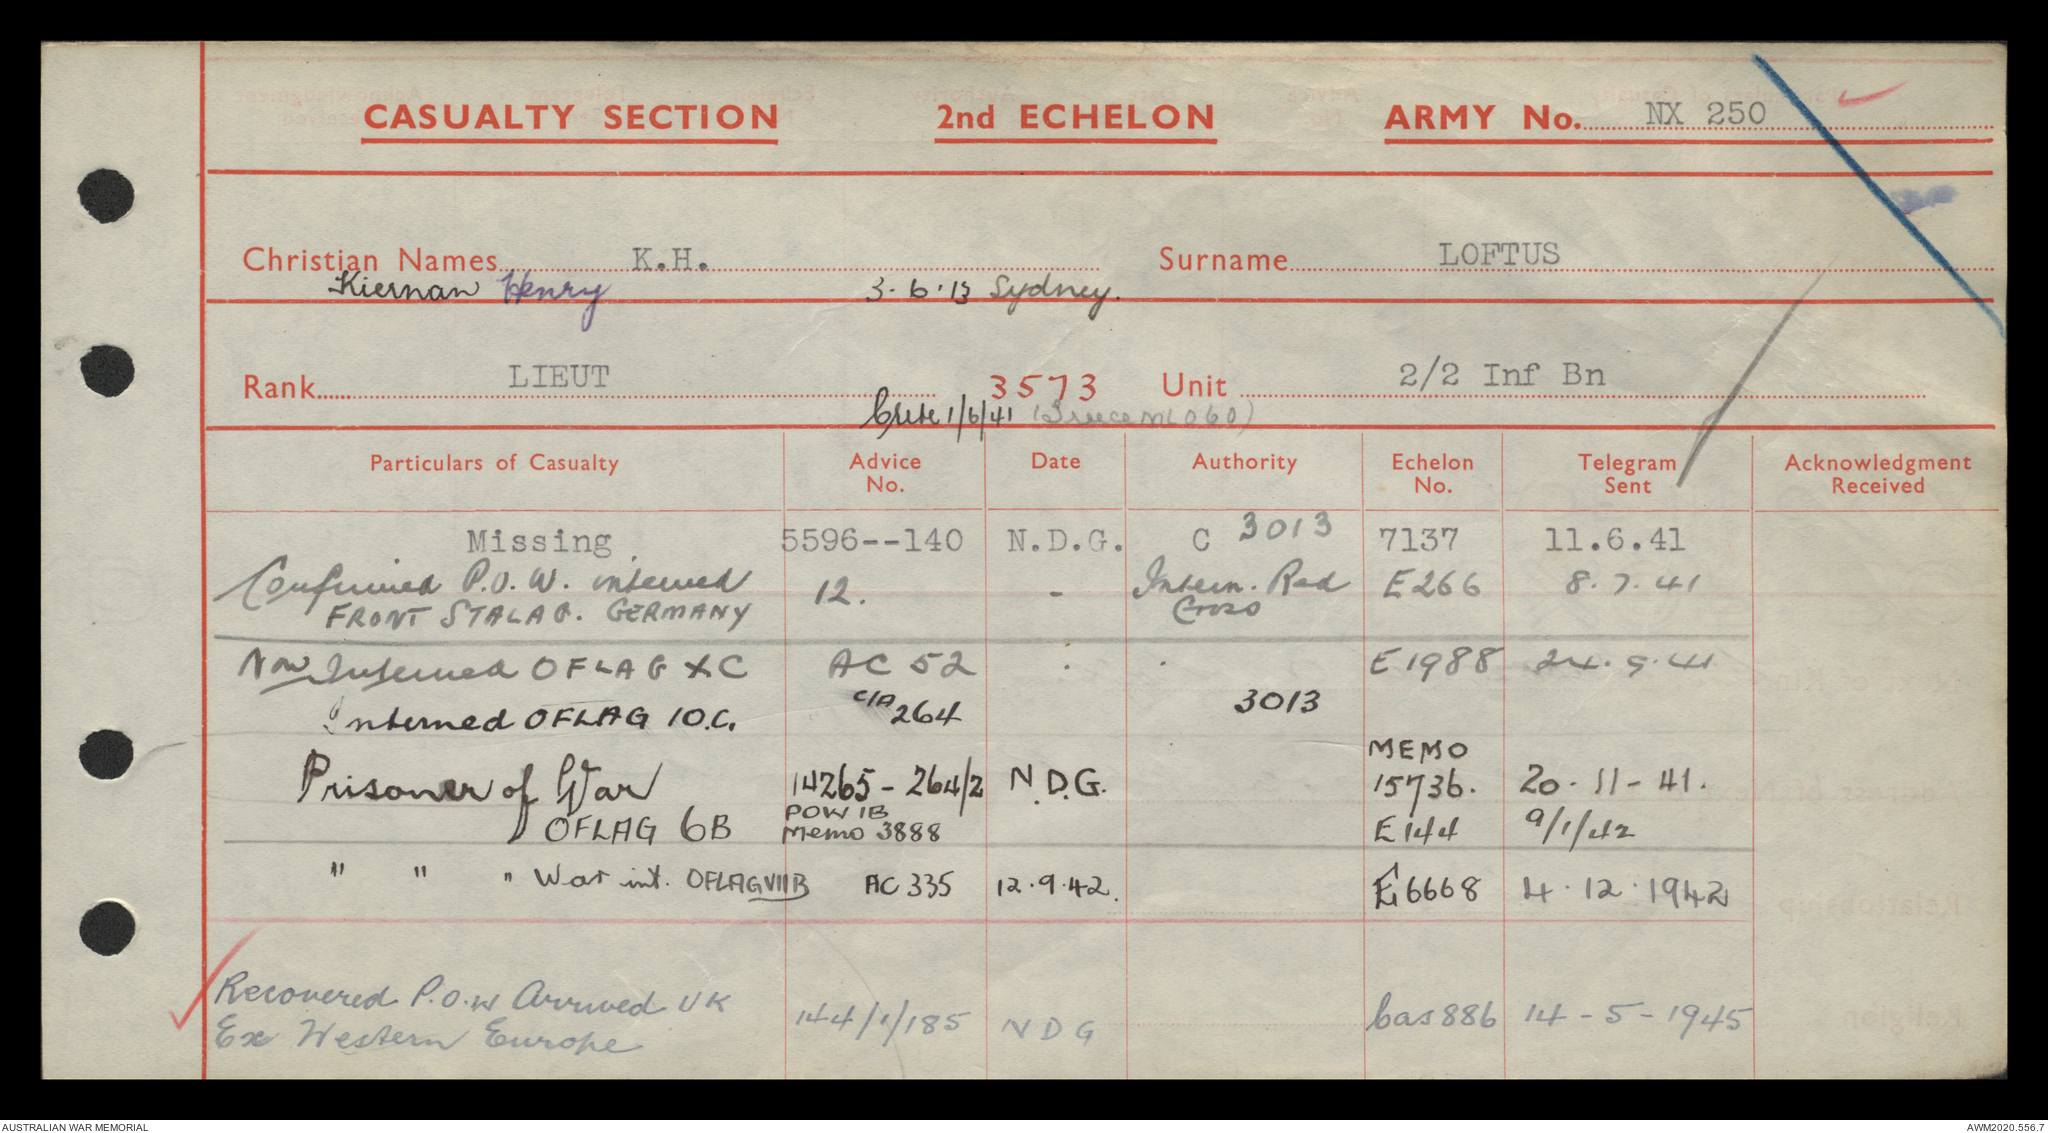 CASUALTY SECTION 2nd ECHELON ARMY No. NX 250
Christian Names K.H. Surname LOFTUS
Kiernan Henry 3.6.13 Sydney.
Rank LIEUT 3573 Unit 2/2 Inf Bn
Crete 1/6/41 (Greece
Particulars of Casualty Advice No. Date Authority Echelon No. Telegram Sent Acknowledgment Received
Missing 5596--140 N.D.G. C 3013 7137 11.6.41
Confirmed P.O.W. interned 12. - Intern. Red Cross E266 8.7.41
FRONT STALAG. GERMANY
Now Interned OFLAG XC AC 52 E1988 24.9.41
Interned OFLAG 10.C. C/A 264 3013
Prisoner of War 14265-264/2 N.D.G. MEMO 15736. 20-11-41.
OFLAG 6B POW 1B Memo 3888 E144 9/1/42
" " " War int. OFLAG VIIB AC 335 12.9.42. E6668 4.12.1942
Recovered P.O.W Arrived UK
Ex Western Europe 144/1/185 NDG Cas 886 14-5-1945
AUSTRALIAN WAR MEMORIAL AWM2020.556.7